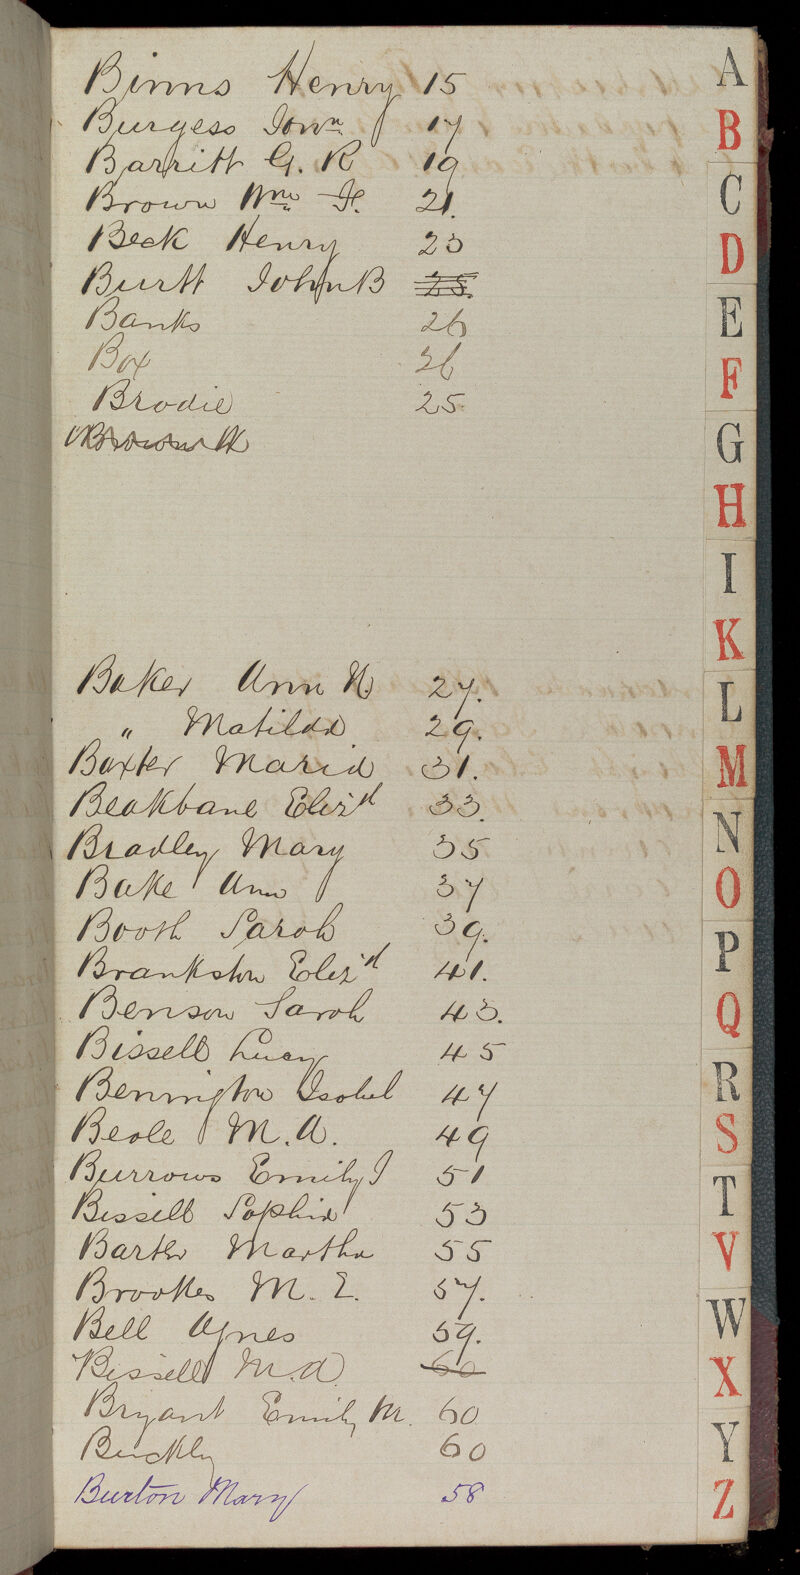 Binns Henry 15
Burgess Jonn 17
Barritt G. R 19
Brown Wm F. 21.
Beck Henry 23
Burtt John B 25.
Banks 26
Box 26
Brodie 25
Brown
Baker Ann H 27.
" Matilda 29.
Baxter Maria 31.
Beakbane Elizth 33.
Bradley Mary 35
Bake Ann 37
Booth Sarah 39.
Brankston Elizth 41.
Benson Sarah 43.
Bissell Lucy 45
Bennington Isobel 47
Beale M. A. 49
Burrows Emily J 51
Bissell Sophia 53
Barter Martha 55
Brookes M. E. 57.
Bell Agnes 59.
Bissell M. A. 60
Bryant Emily M. 60
Buckley 60
Burton Mary 58
A
B
C
D
E
F
G
H
I
K
L
M
N
O
P
Q
R
S
T
V
W
X
Y
Z